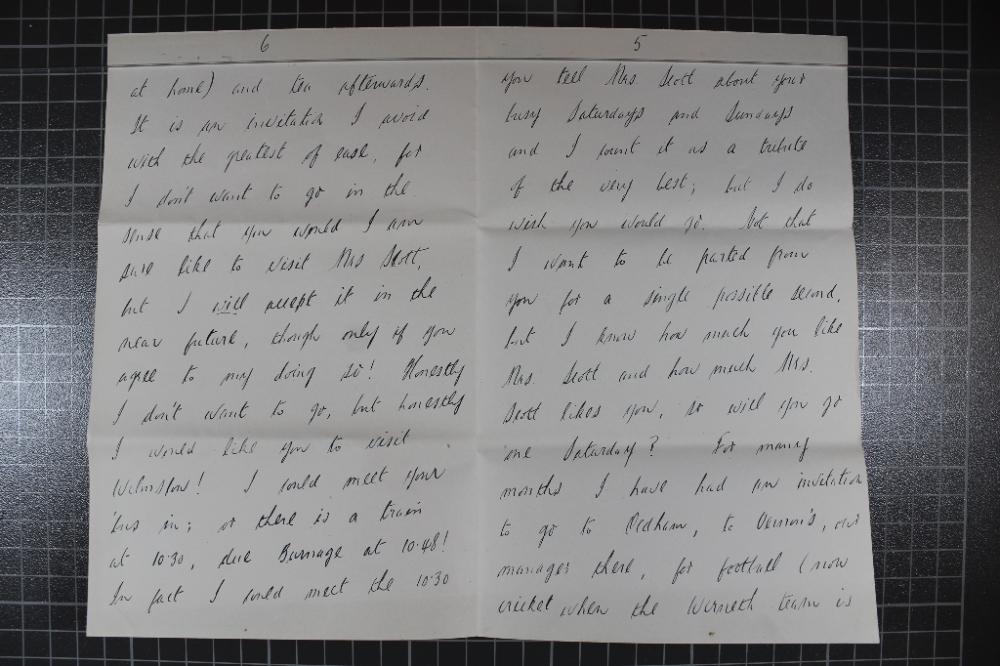 5
you tell Mrs. Scott about your
busy Saturdays and Sundays
and I count it as a tribute
of the very best; but I do
wish you would go. Not that
I want to be parted from
you for a single possible second,
but I know how much you like
Mrs. Scott and how much Mrs.
Scott likes you, so will you go
one Saturday? For many
months I have had an invitation
to go to Oldham, to Vernon's, our
manager there, for football (now
cricket when the Werneth team is
6
at home) and tea afterwards.
It is an invitation I avoid
with the greatest of ease, for
I don't want to go in the
sense that you would I am
sure like to visit Mrs Scott,
but I will accept it in the
near future, though only if you
agree to my doing so! Honestly
I don't want to go, but honestly
I would like you to visit
Wilmslow! I could meet your
'bus in; or there is a train
at 10.30, due Burnage at 10.48!
In fact I could meet the 10.30